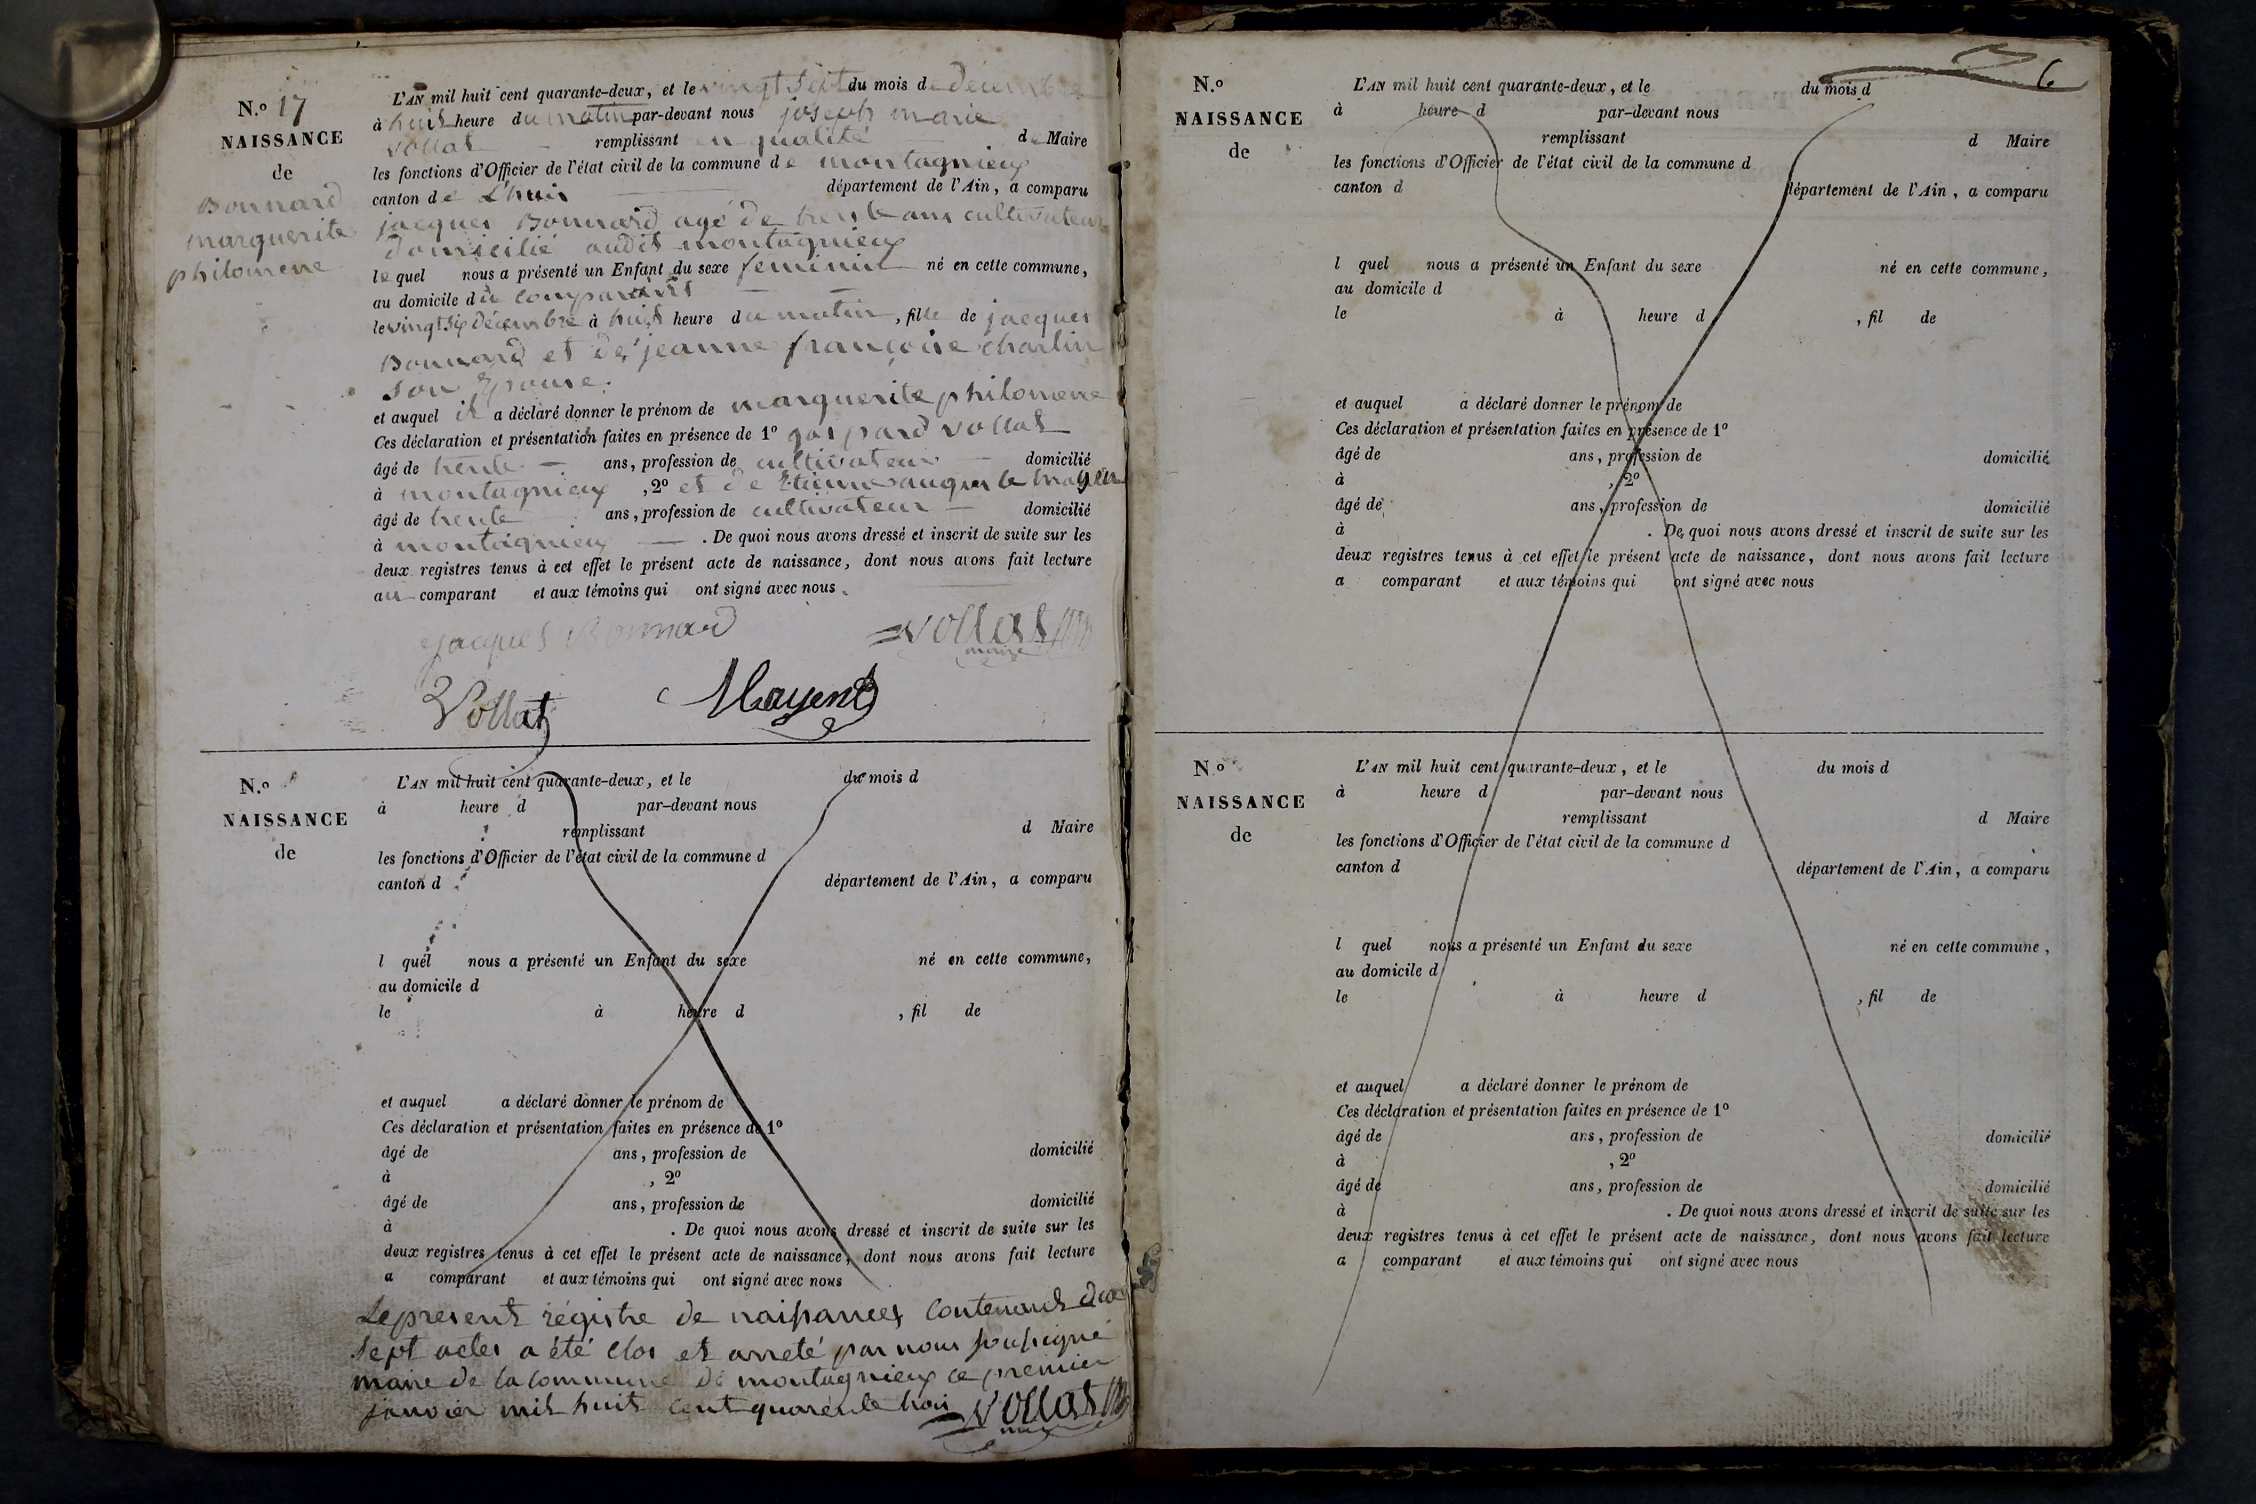 N.º 17
NAISSANCE
de
Bonnard
marguerite
philomene
L'AN mil huit cent quarante-deux, et le vingt sept du mois de decembre
à huit heure du matin par-devant nous joseph marie
vollat remplissant en qualité de Maire
les fonctions d'Officier de l'état civil de la commune de montagnieux
canton de L'huis département de l'Ain, a comparu
jacques Bonnard agé de trente ans cultivateur
domicilié audit montagnieux
lequel nous a présenté un Enfant du sexe feminin né en cette commune,
au domicile du comparant
le vingt six décembre à huit heure du matin, fille de jacques
Bonnard et de jeanne françoise charlin
son Epouse.
et auquel il a déclaré donner le prénom de marguerite philomene
Ces déclaration et présentation faites en présence de 1º gaspard vollat
âgé de trente ans, profession de cultivateur domicilié
à montagnieux, 2º et de Etienne
âgé de trente ans, profession de cultivateur domicilié
à montagnieux. De quoi nous avons dressé et inscrit de suite sur les
deux registres tenus à cet effet le présent acte de naissance, dont nous avons fait lecture
au comparant et aux témoins qui ont signé avec nous.
jacques Bonnard vollat
maire
Vollat Mayent
N.º
NAISSANCE
de
L'AN mil huit cent quarante-deux, et le du mois d
à heure d par-devant nous
remplissant d Maire
les fonctions d'Officier de l'état civil de la commune d
canton d département de l'Ain, a comparu
l quel nous a présenté un Enfant du sexe né en cette commune,
au domicile d
le à heure d , fil de
et auquel a déclaré donner le prénom de
Ces déclaration et présentation faites en présence de 1º
âgé de ans, profession de domicilié
à , 2º
âgé de ans, profession de domicilié
à . De quoi nous avons dressé et inscrit de suite sur les
deux registres tenus à cet effet le présent acte de naissance, dont nous avons fait lecture
a comparant et aux témoins qui ont signé avec nous
Le present régistre de naissances contenant dix
sept actes a été clos et arreté par nous soussigné
maire de la commune de montagnieux ce premier
janvier mil huit cent quarente trois vollat
maire
6
N.º
NAISSANCE
de
L'AN mil huit cent quarante-deux, et le du mois d
à heure d par-devant nous
remplissant d Maire
les fonctions d'Officier de l'état civil de la commune d
canton d département de l'Ain, a comparu
l quel nous a présenté un Enfant du sexe né en cette commune,
au domicile d
le à heure d , fil de
et auquel a déclaré donner le prénom de
Ces déclaration et présentation faites en présence de 1º
âgé de ans, profession de domicilié
à , 2º
âgé de ans, profession de domicilié
à . De quoi nous avons dressé et inscrit de suite sur les
deux registres tenus à cet effet le présent acte de naissance, dont nous avons fait lecture
a comparant et aux témoins qui ont signé avec nous
N.º
NAISSANCE
de
L'AN mil huit cent quarante-deux, et le du mois d
à heure d par-devant nous
remplissant d Maire
les fonctions d'Officier de l'état civil de la commune d
canton d département de l'Ain, a comparu
l quel nous a présenté un Enfant du sexe né en cette commune,
au domicile d
le à heure d , fil de
et auquel a déclaré donner le prénom de
Ces déclaration et présentation faites en présence de 1º
âgé de ans, profession de domicilié
à , 2º
âgé de ans, profession de domicilié
à . De quoi nous avons dressé et inscrit de suite sur les
deux registres tenus à cet effet le présent acte de naissance, dont nous avons fait lecture
a comparant et aux témoins qui ont signé avec nous